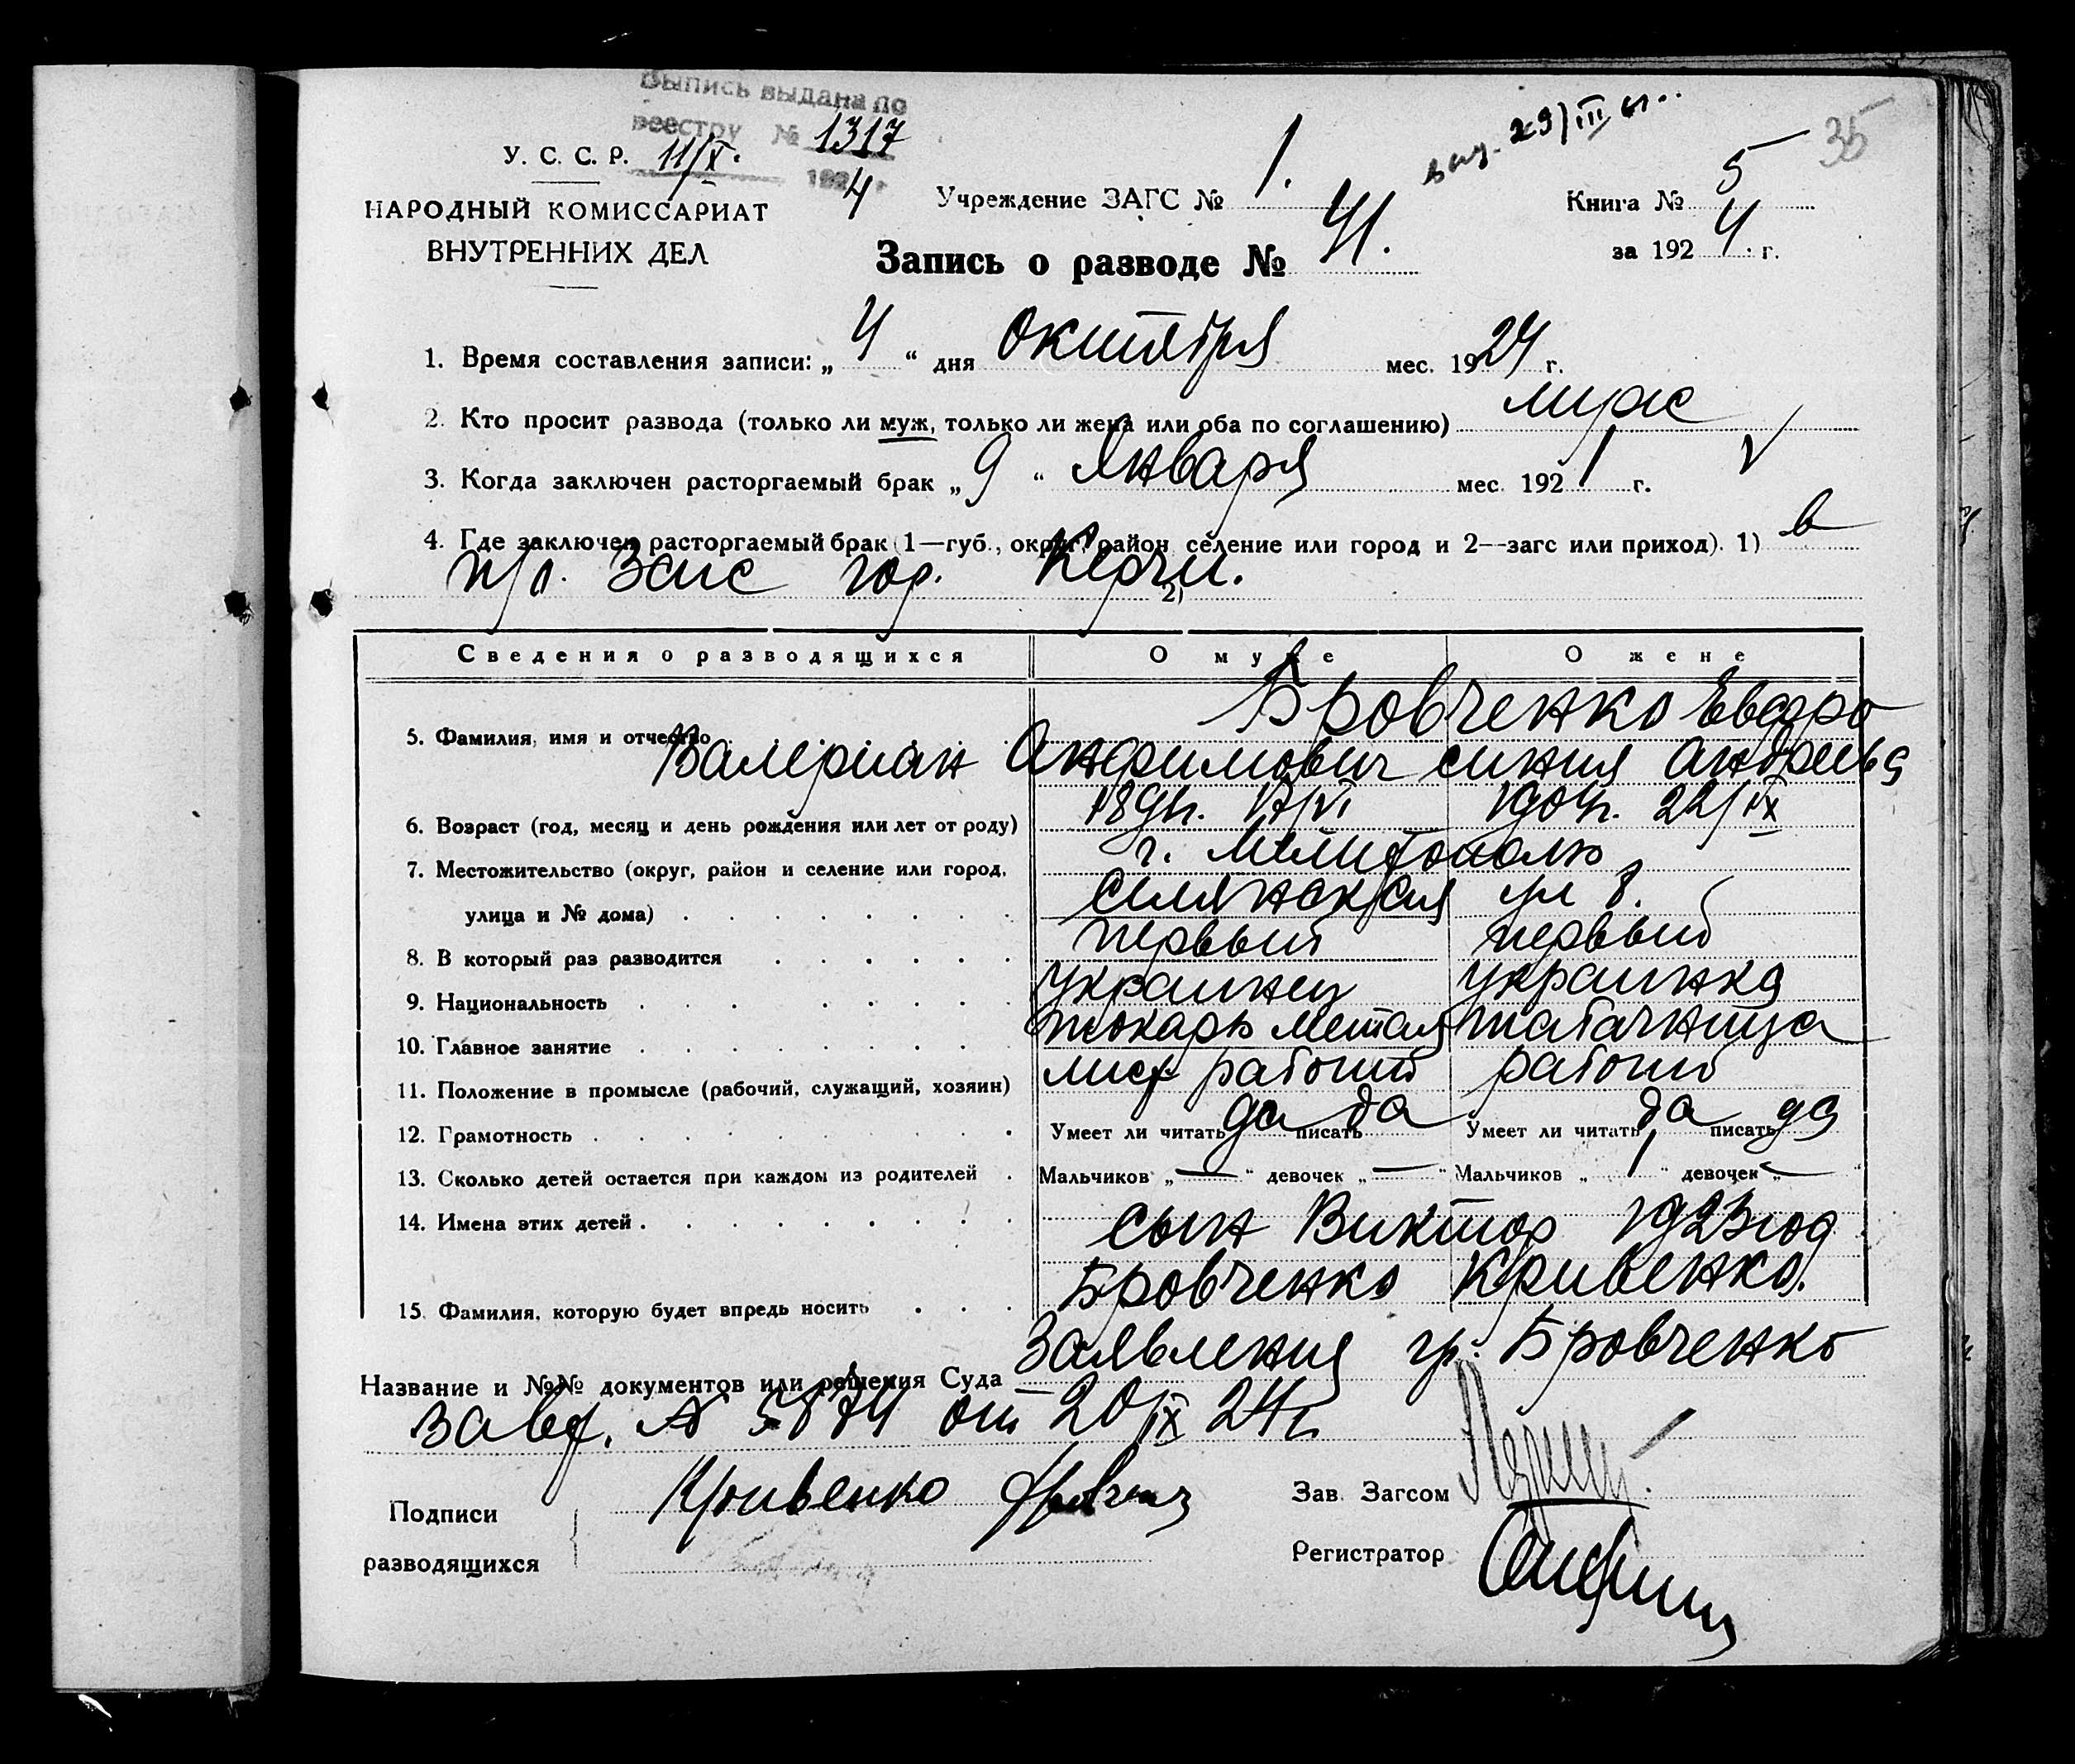 Выпись выдана по
реестру № 1317
У. С. С. Р. 11/X. 1924 г
29/III
35
НАРОДНЫЙ КОМИССАРИАТ
ВНУТРЕННИХ ДЕЛ
Учреждение ЗАГС № 1.
Книга № 5
за 1924 г.
Запись о разводе № 41.
1. Время составления записи: „ 4 “ дня Октября мес. 1924 г.
2. Кто просит развода (только ли муж, только ли жена или оба по соглашению) муж
3. Когда заключен расторгаемый брак „ 9 “ Января мес. 1921 г. V
4. Где заключен расторгаемый брак (1—губ., округ, район, селение или город и 2—загс или приход). 1) в
п/о. Загс гор. Керчи. 2)
Сведения о разводящихся О муже О жене
Бровченко Евфро
5. Фамилия, имя и отчество Валериан Анфимович синия Андреева
6. Возраст (год, месяц и день рождения или лет от роду) 189 17/VI 1904г. 22/IX
7. Местожительство (округ, район и селение или город, г. Мелитополь
улица и № дома) Селянская ул 8.
8. В который раз разводится первый первый
9. Национальность украинец украинка
10. Главное занятие токарь метал табачница
11. Положение в промысле (рабочий, служащий, хозяин) лист рабочий рабочий
12. Грамотность Умеет ли читать да писать да Умеет ли читать да писать да
13. Сколько детей остается при каждом из родителей Мальчиков „ — “ девочек „ — “ Мальчиков „ 1 “ девочек „ — “
14. Имена этих детей сын Виктор 1923 год
15. Фамилия, которую будет впредь носить Бровченко Кривенко.
Название и №№ документов или решения Суда Заявления гр. Бровченко
№ 5874 от 20/IX 24 г.
Подписи
разводящихся
Кривенко
Зав. Загсом
Регистратор